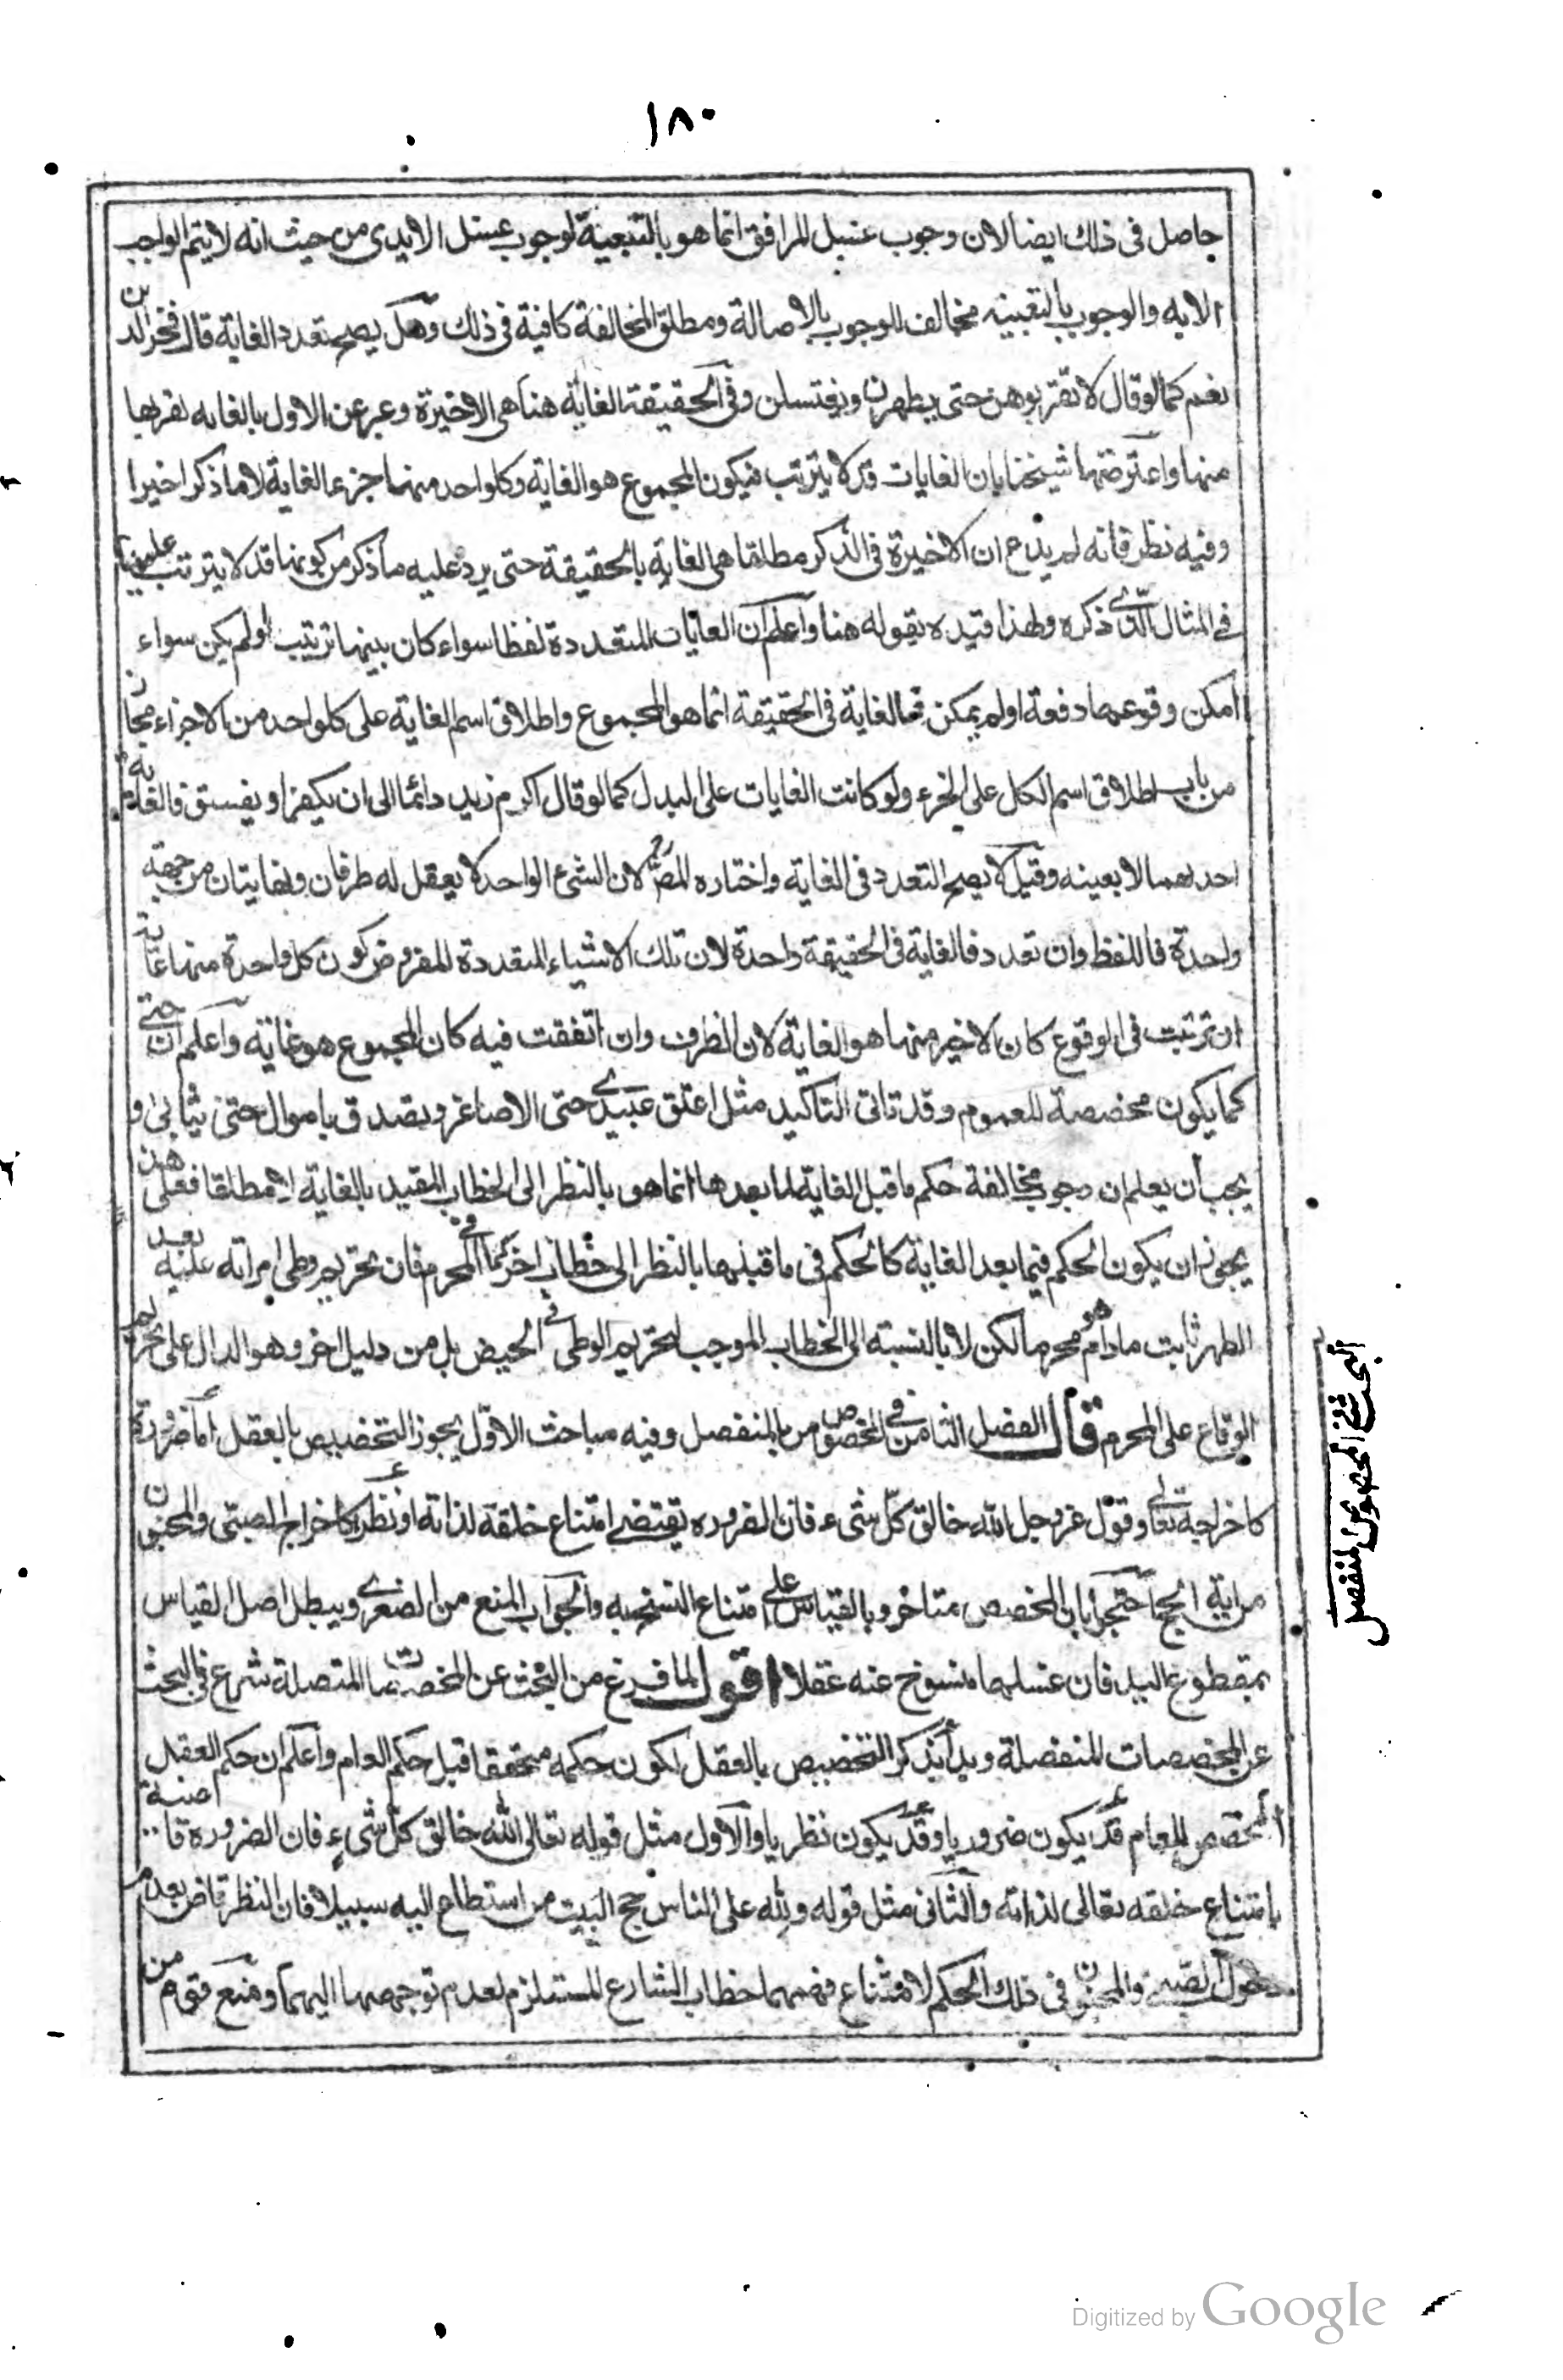 ١٨٠
حاصل فى ذلك ايضا لان وجوب غسل المرافق انما هو بالتبعية لوجوب غسل الايدى من حيث انه لا يتم الواجب
الا به والوجوب بالتبعية مخالف للوجوب بالاصالة ومطلق المخالفة كافية فى ذلك وهل يصح تعدد الغاية قال فخر الدين
نعم كما لو قال لا تقربوهن حتى يطهرن ويغتسلن وفى الحقيقة الغاية هنا هى الاخيرة وعبر عن الاول بالغاية لقربها
منها واعترضها شيخنا بان الغايات قد لا يترتب فيكون المجموع هو الغاية وكل واحد منهما جزء الغاية لا ما ذكر اخيرا
وفيه نظر فانه لم يدع ان الاخيرة فى الذكر مطلقا هى الغاية بالحقيقة حتى يرد عليه ما ذكر من كونها قد لا يترتب عليها
فى المثال الذى ذكره ولهذا قيده بقوله هنا واعلم ان الغايات المتعددة لفظا سواء كان بينها ترتيب اولم يكن سواء
امكن وقوعها دفعة اولم يمكن فالغاية فى الحقيقة انما هو المجموع واطلاق اسم الغاية على كل واحد من الاجزاء مجاز
من باب اطلاق اسم الكل على الجزء ولو كانت الغايات على البدل كما لو قال اكرم زيد دائما الى ان يكفر او يفسق فالغاية
احدهما لا بعينه وقيل لا يصح التعدد فى الغاية واختاره المصر لان الشئ الواحد لا يعقل له طرفان ونهايتان من جهة
واحدة فاللفظ وان تعدد فالغاية فى الحقيقة واحدة لان تلك الاشياء المتعددة المفروض كون كل واحدة منها غاية
ان ترتبت فى الوقوع كان الاخير منها هو الغاية لان الطرف وان اتفقت فيه كان المجموع هو غاية واعلم ان حتى
كما يكون مخصصة للعموم وقد تاتى التاكيد مثل اعتق عبيدى حتى الاصاغر وتصدق باموال حتى ثيابى و
يجب ان يعلم ان وجوب مخالفة حكم ما قبل الغاية لما بعدها انما هو بالنظر الى الخطاب المقيد بالغاية لا مطلقا فعلى هذا
يجوز ان يكون الحكم فيما بعد الغاية كالحكم فى ما قبلها بالنظر الى خطاب اخر كما فى المحرم فان تحريم وطى امراته عليه بعد
الطهر ثابت مادام هو محرما لكن لا بالنسبة الى الخطاب الموجب لتحريم الوطى فى الحيض بل من دليل اخر وهو الدال على تحريم
الوقاع على المحرم قال الفصل الثامن فى المخصوص بالمنفصل وفيه مباحث الاول يجوز التخصيص بالعقل اما ضرورة
كاخراجه تعالى وقول عز وجل الله خالق كل شىء فان الضرورة تقتضى امتناع خلقه لذاته او نظرا كاخراج الصبى والمجنون
من اية الحج احتجوا بان المخصص متاخر وبالقياس على امتناع النسخ به والجواب المنع من الصغرى ويبطل اصل القياس
بمقطوع اليد فان غسلها منسوخ عنه عقلا اقول لما فرغ من البحث عن المخصصات المتصلة شرع فى البحث
عن المخصصات المنفصلة وبدأ بذكر التخصيص بالعقل لكون حكمه متحققا قبل حكم العام واعلم ان حكم العقل
المخصص للعام قد يكون ضروريا وقد يكون نظريا والاول مثل قوله تعالى الله خالق كل شىء فان الضرورة قاضية
بامتناع خلقه تعالى لذاته والثانى مثل قوله ولله على الناس حج البيت من استطاع اليه سبيلا فان النظر قاض بعدم
دخول الصبى والمجنون فى ذلك الحكم لامتناع فهمهما خطاب الشارع المستلزم لعدم توجهها اليهما ومنع قوم من
البحث فى المخصوص المنفصل
Digitized by Google